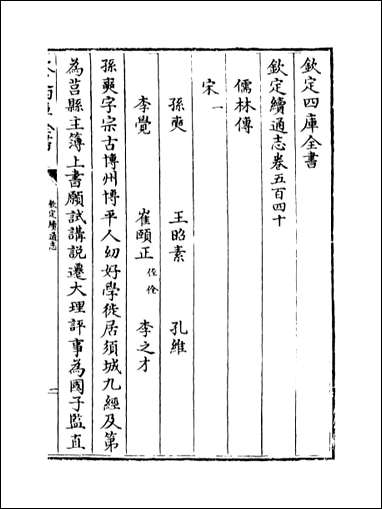 欽定四庫全書
欽定續通志卷五百四十
儒林傳
宋一
孫奭 王昭素 孔維
李覺 崔頤正 弟偓佺 李之才
孫奭字宗古博州博平人幼好學徙居須城九經及第
為莒縣主簿上書願試講說遷大理評事為國子監直
欽定續通志